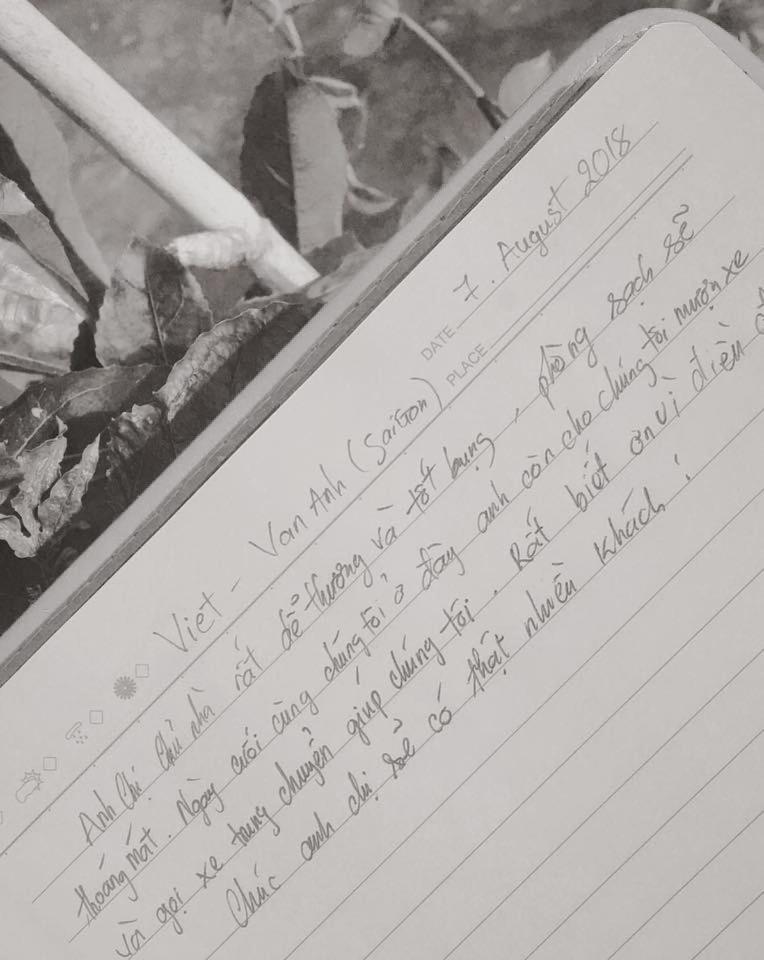 DATE 7. August 2018
PLACE
Viet - Van Anh (Saigon)
Anh Chị Chủ nhà rất dễ thương và tốt bụng, phòng sạch sẽ
thoáng mát. Ngày cuối cùng chúng tôi ở đây anh còn cho chúng tôi mượn xe
và gọi xe trung chuyển giúp chúng tôi. Rất biết ơn vì điều
Chúc anh chị sẽ có thật nhiều khách!